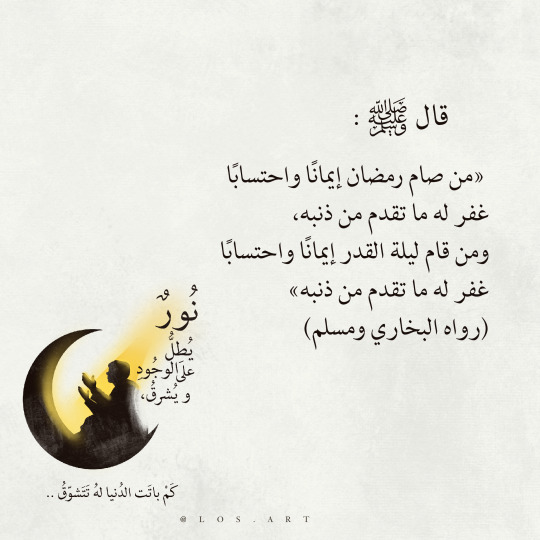 قال ﷺ :
«من صام رمضان إيمانًا واحتسابًا
غفر له ما تقدم من ذنبه،
ومن قام ليلة القدر إيمانًا واحتسابًا
غفر له ما تقدم من ذنبه»
(رواه البخاري ومسلم)
نُورٌ
يُطلُّ
علىَ الوجُودِ
و يُشرقُ،
كَمْ باتَت الدُنيا لهُ تَتَشوّقُ ..
@LOS.ART